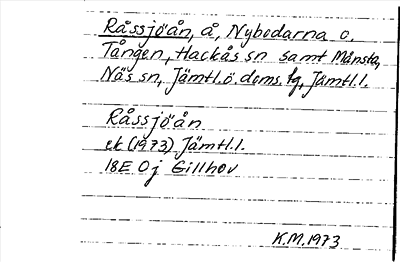 Råssjöån, å, Nybodarna o.
Tången, Hackås sn samt Månsta,
Näs sn, Jämtl.ö.doms.tg, Jämtl.l.
Råssjöån
ek (1973) Jämtl.l.
18E 0j Gillhov
K.M. 1973